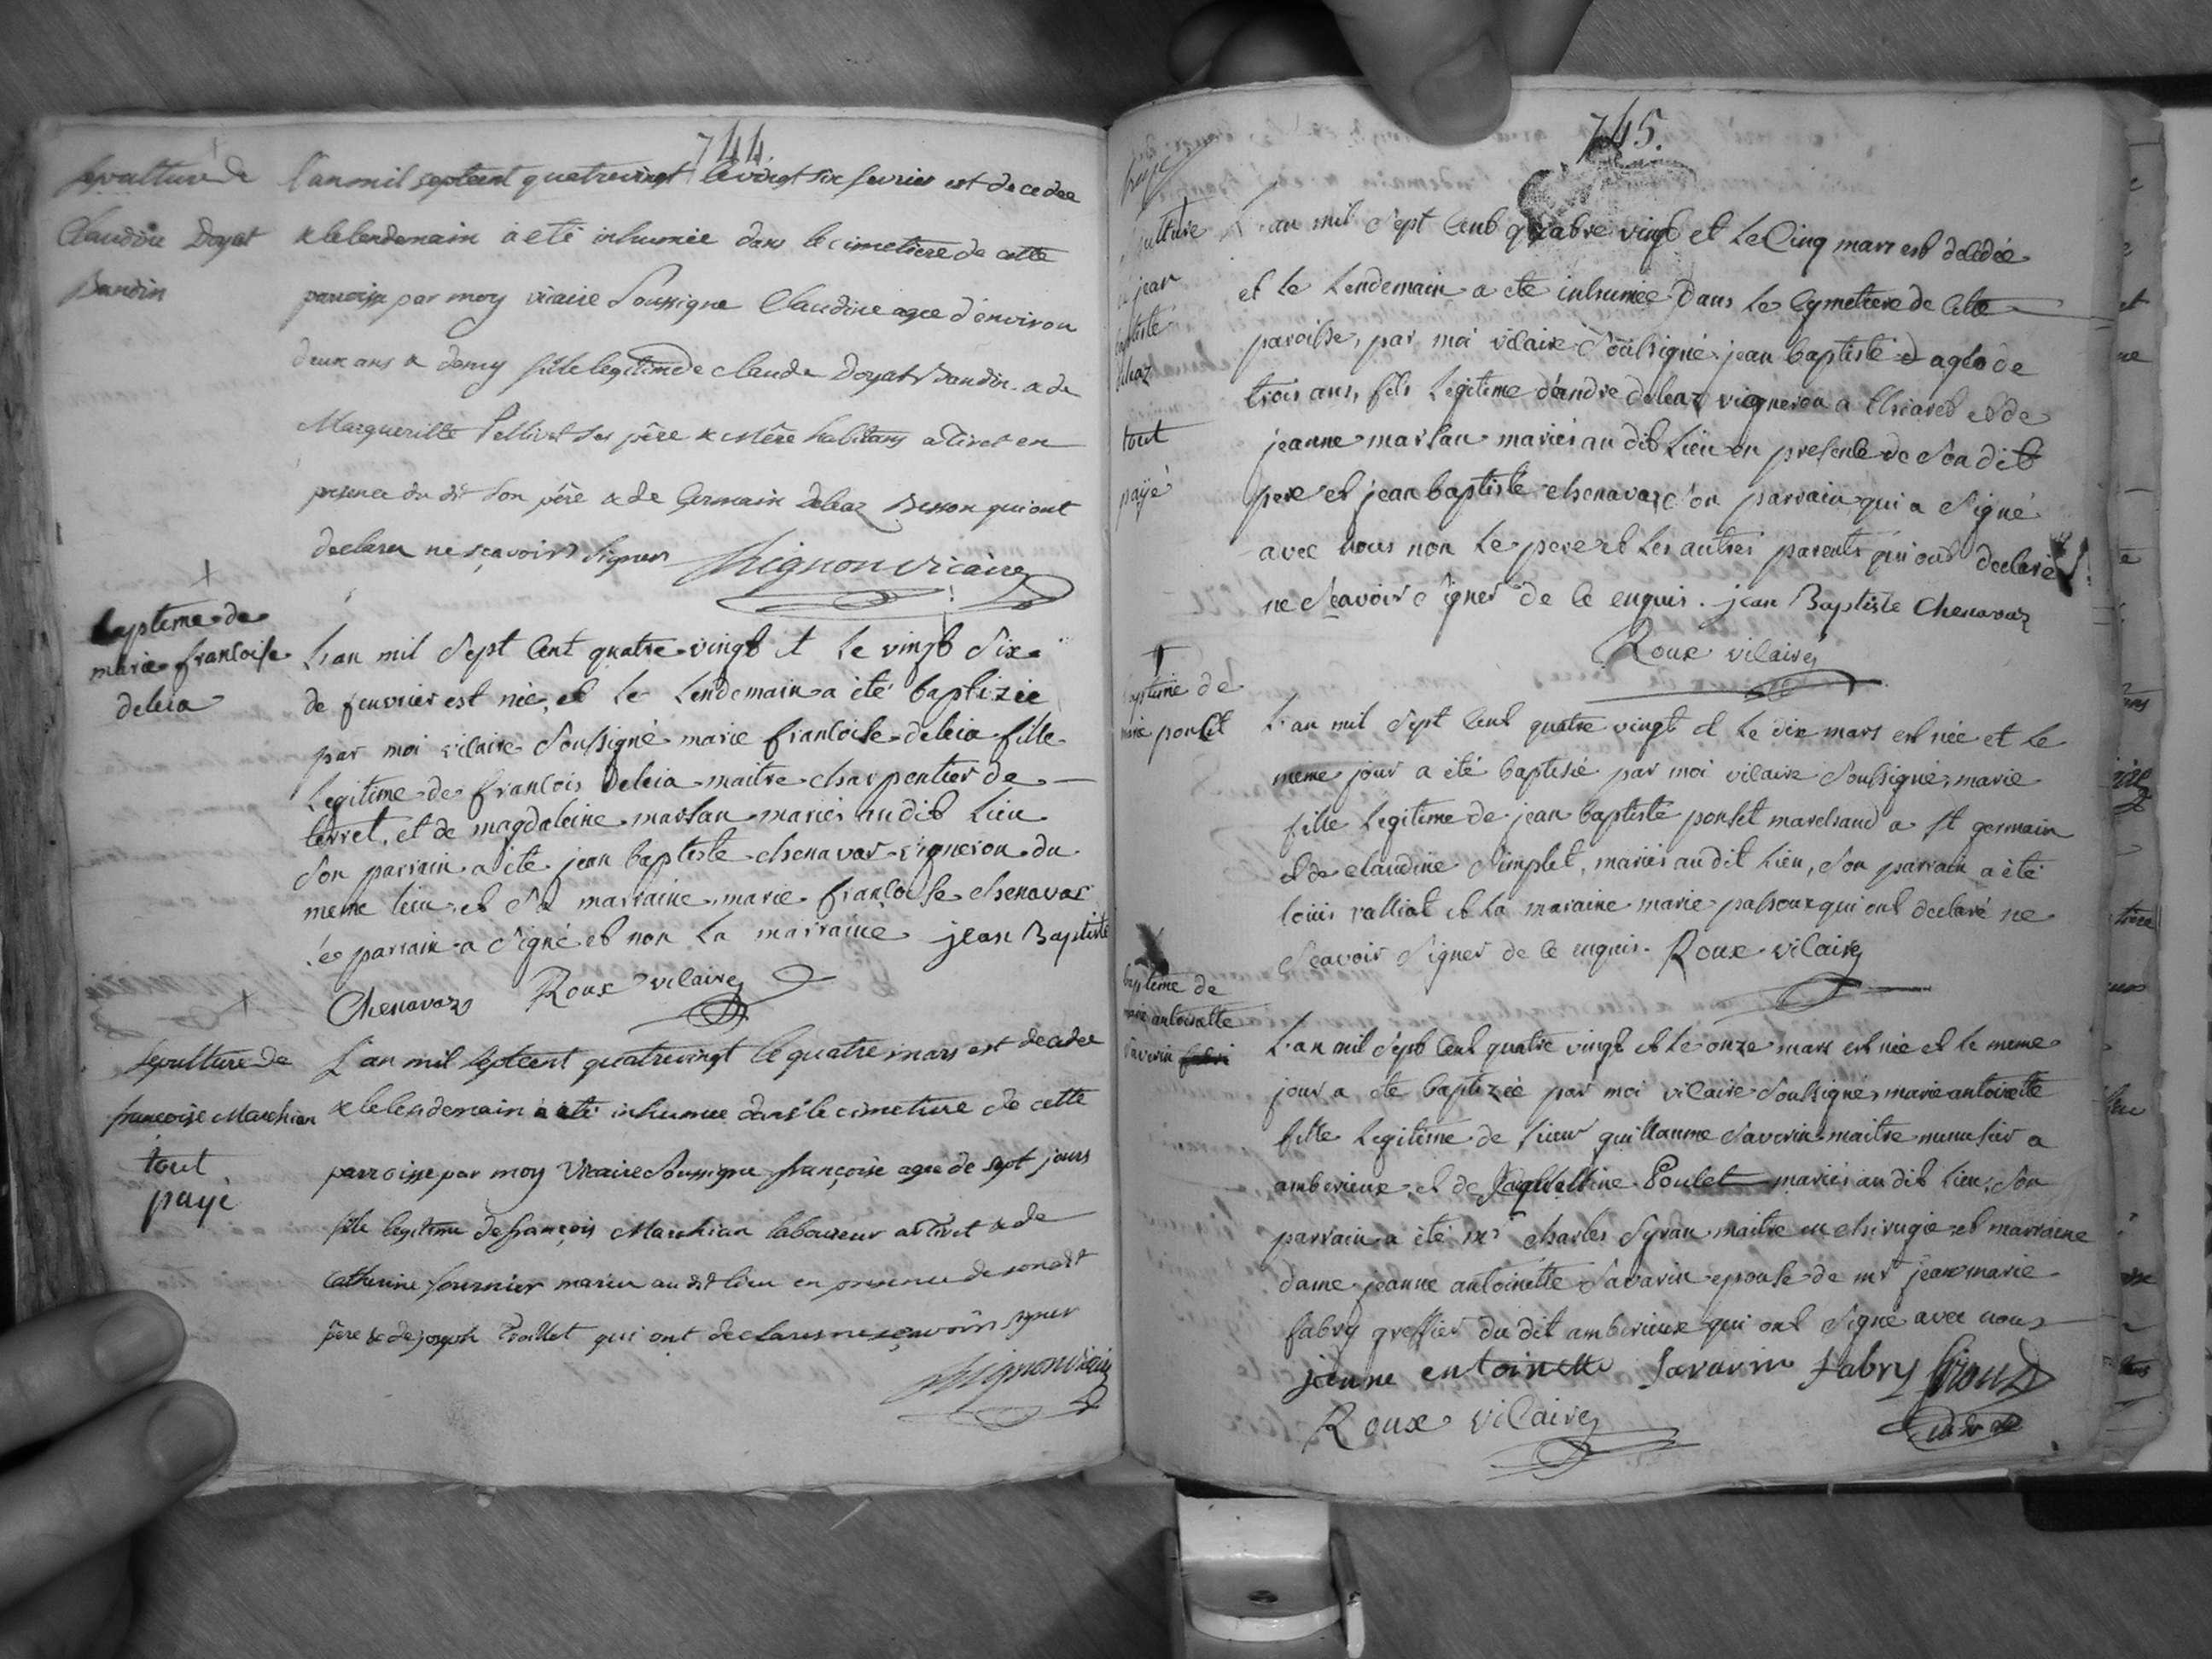 744.
sepulture de
Claudine Doyat
Baudin
L'an mil septcent quatrevingt le vingt six fevrier est decedee
& le lendemain a eté inhumée dans le cimetiere de cette
paroisse par moy vicaire soussigne Claudine agee d'environ
deux ans & demy fille legitime de claude Doyat Baudin & de
Margueritte Pellivet ses père & mère habitans a Tiret en
presence du dit son père & de Germain Deleaz Besson qui ont
declarer ne sçavoir signer Mignon vicaire
baptème de
marie francoise
deleia
L'an mil sept cent quatre vingt et le vingt six
de feuvrier est née, et le lendemain a été baptizée
par moi vicaire soussigné marie francoise deleia fille
legitime de francois deleia maitre charpentier de
terret, et de magdeleine marsan mariés au dit lieu
son parrain a été jean baptiste chenavas vigneron du
meme lieu et sa marraine marie francoise chenavas
le parrain a signé et non la marraine jean Baptiste
Chenavaz Roux vicaire
sepulture de
françoise Marchian
tout
payé
L'an mil septcent quatrevingt le quatre mars est decedee
& le lendemain a eté inhumee dans le cimetiere de cette
parroisse par moy Vicaire soussigne françoise agee de sept jours
fille legitime de françois Marchian laboureur a Tiret & de
Catherine fournier maries au dit lieu en presence de son dit
père & de joseph Trollet qui ont declares ne sçavoir signer
Mignon vicaire
745.
payé
sepulture
de jean
baptiste
deleaz
tout
payé
L'an mil sept cent quatre vingt et le cinq mars est decedée
et le lendemain a eté inhumée dans le cymetiere de cette
paroisse, par moi vicaire soussigné jean baptiste agé de
trois ans, fils legitime d'andre deleaz vigneron a thiaret et de
jeanne marsan mariés au dit lieu en presence de son dit
pere et jean baptiste chenavaz son parrain qui a signé
avec nous non le pere et les autres parents qui ont declaré
ne sçavoir signer de ce enquis. jean Baptiste Chenavaz
Roux vicaire
baptême de
marie ponset
L'an mil sept cent quatre vingt et le dix mars est née et le
meme jour a été baptisé par moi vicaire soussigné, marie
fille legitime de jean baptiste ponset marchand a st germain
et de claudine simplet, mariés au dit lieu, son parrain a été
louis ralliat et la maraine marie passoux qui ont declaré ne
sçavoir signer de ce enquis. Roux vicaire
baptême de
marie antoinette
savarin
L'an mil sept cent quatre vingt et le onze mars est née et le meme
jour a eté baptizée par moi vicaire soussigné, marie antoinette
fille legitime de sieur guillaume savarin maitre menusier a
amberieux et de Jaquelline Poulet mariés au dit lieu, son
parrain a été mr charles syran maitre en chirugie et marraine
dame jeanne antoinette savarin epouse de mr jean marie
fabry greffier du dit amberieux qui ont signé avec nous
jeanne entoinette savarin fabry
Roux vicaire